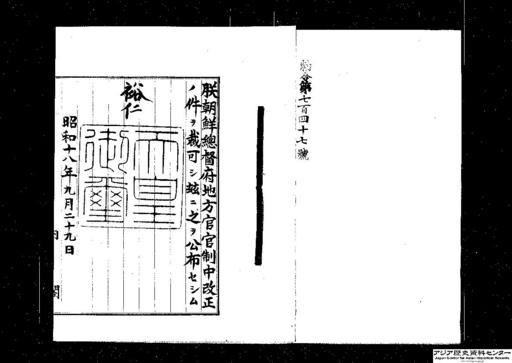 勅令第七百四十七號
朕朝鮮總督府地方官官制中改正
ノ件ヲ裁可シ玆ニ之ヲ公布セシム
裕仁
天皇御璽
昭和十八年九月二十九日
内閣
アジア歴史資料センター
Japan Center for Asian Historical Records